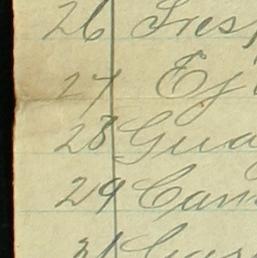 26 Tres
27 Ej
28 Gua
29 Cam
31